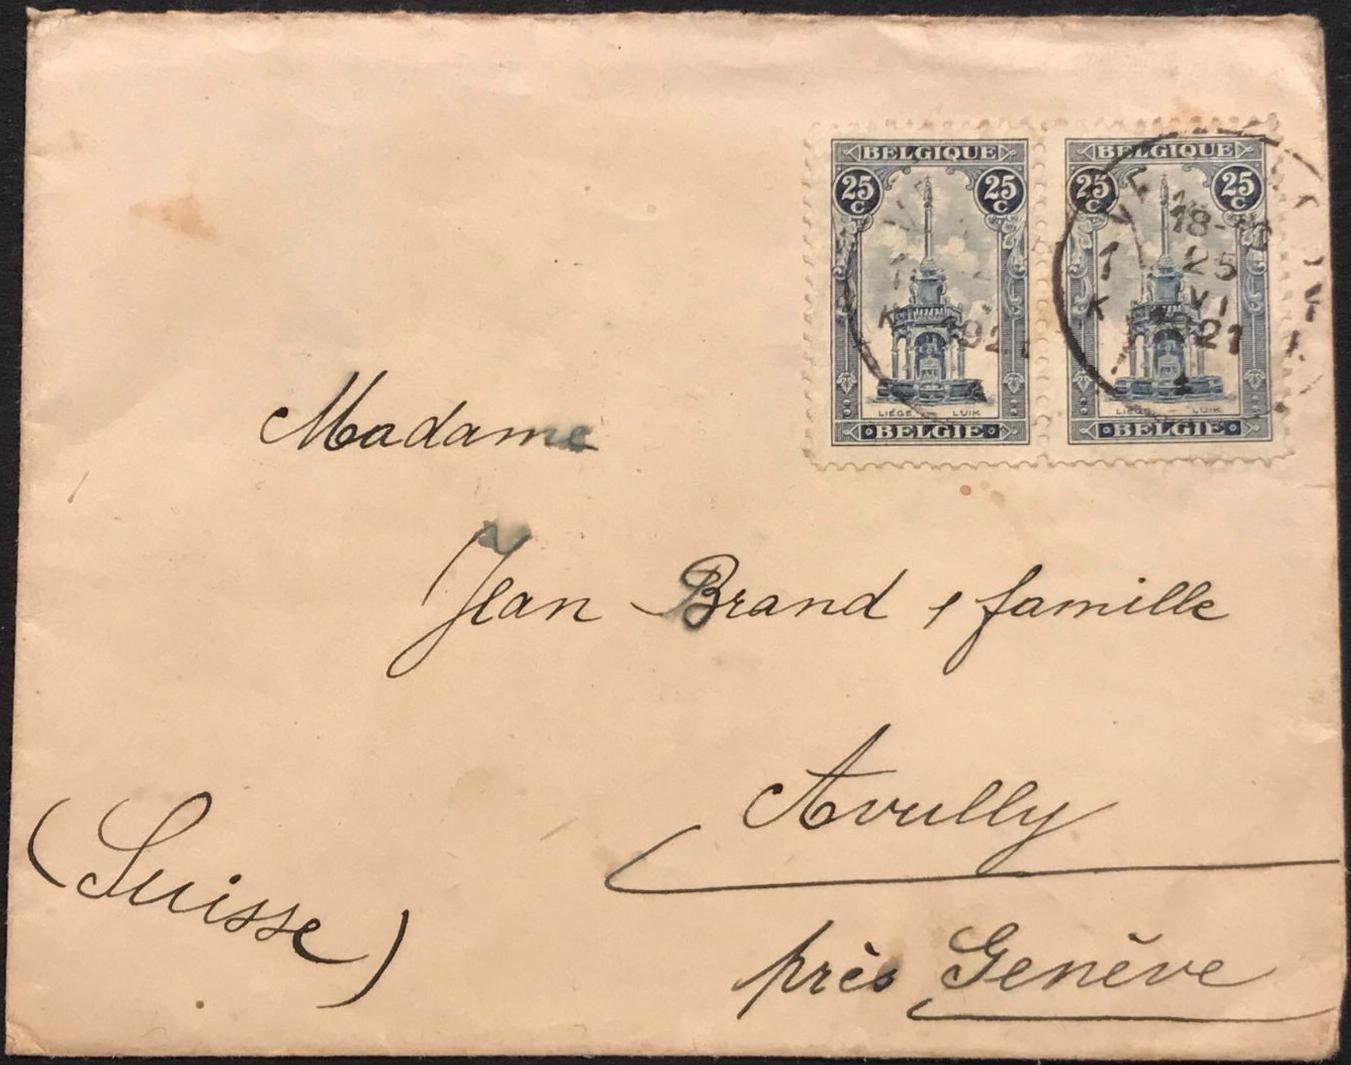 BELGIQUE BELGIQUE
25 C 25 C 25 C 25 C
18-
1 25
K VI
K 1921 21
LIÉGE LUIK LIÉGE — LUIK
BELGIE BELGIE
Madame
Jean Brand, famille
Avully
(Suisse)
près Genève